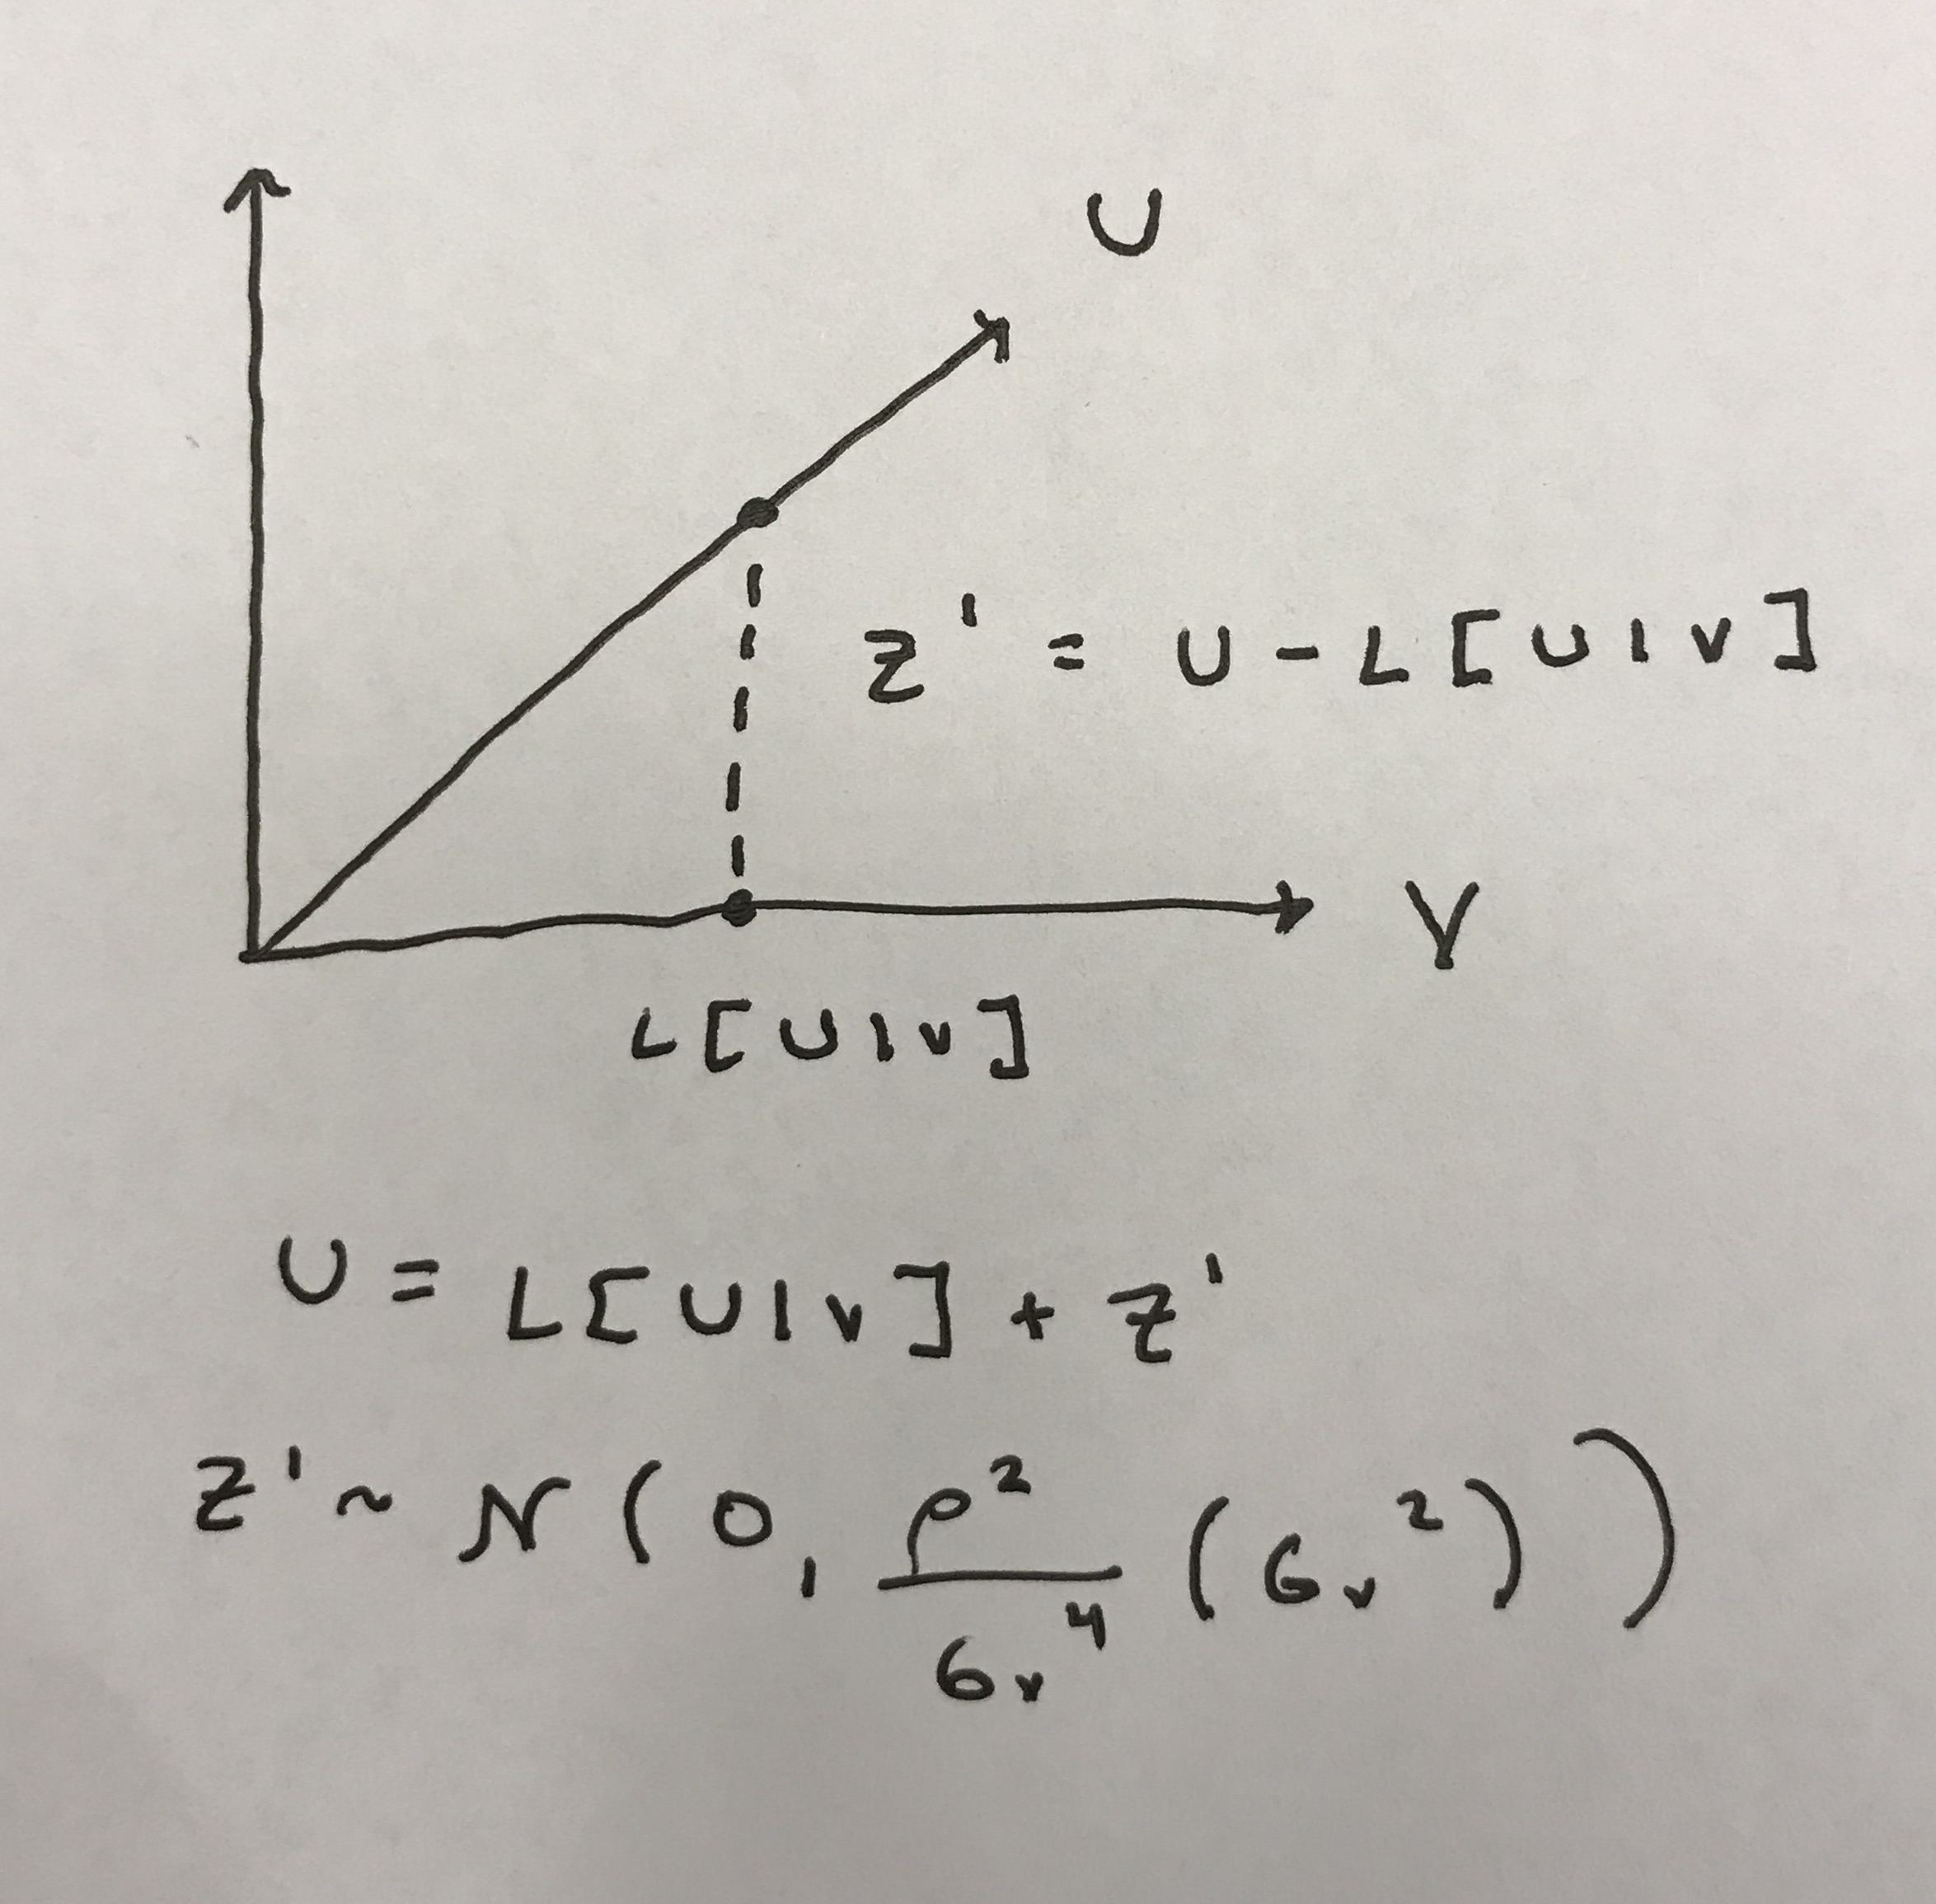 U
Z' = U - L[U|V]
V
L[U|V]
U = L[U|V] + Z'
Z' ~ N(0, ρ²/σᵥ⁴ (σᵥ²))